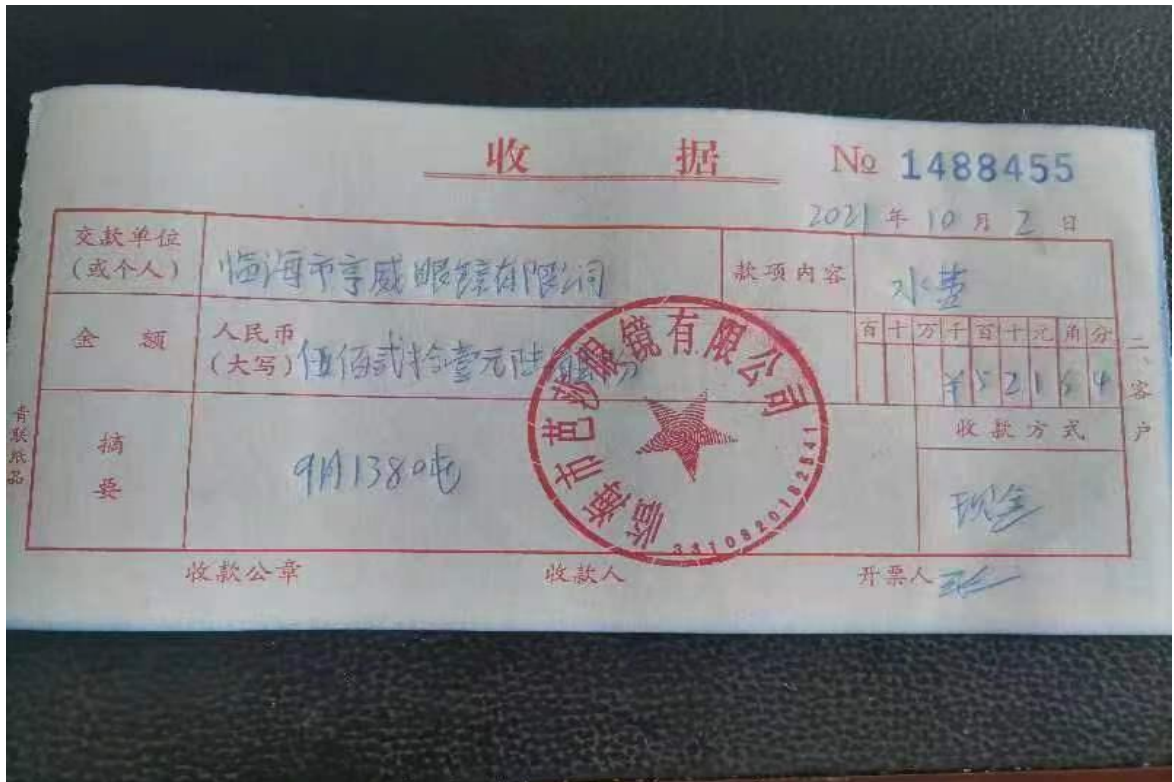 收 据 № 1488455
2021 年 10 月 2 日
交款单位
(或个人)
临海市亨威眼镜有限公司
款项内容
水费
金 额
人民币
(大写)
伍佰贰拾壹元陆角肆分
百 十 万 千 百 十 元 角 分
¥ 5 2 1 6 4
摘
要
9月1380吨
收款方式
现金
临海市芭莎眼镜有限公司
收款公章
收款人
开票人
二、客户